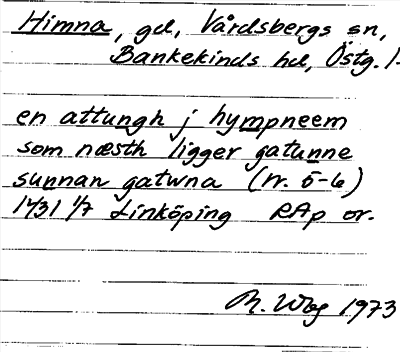 Himna, gd, Vårdsbergs sn,
Bankekinds hd, Östg. l.
en attungh j hympneem
som næsth ligger gatunne
sunnan gatwna (nr. 5-6)
1431 1/7 Linköping RAp or.
1973